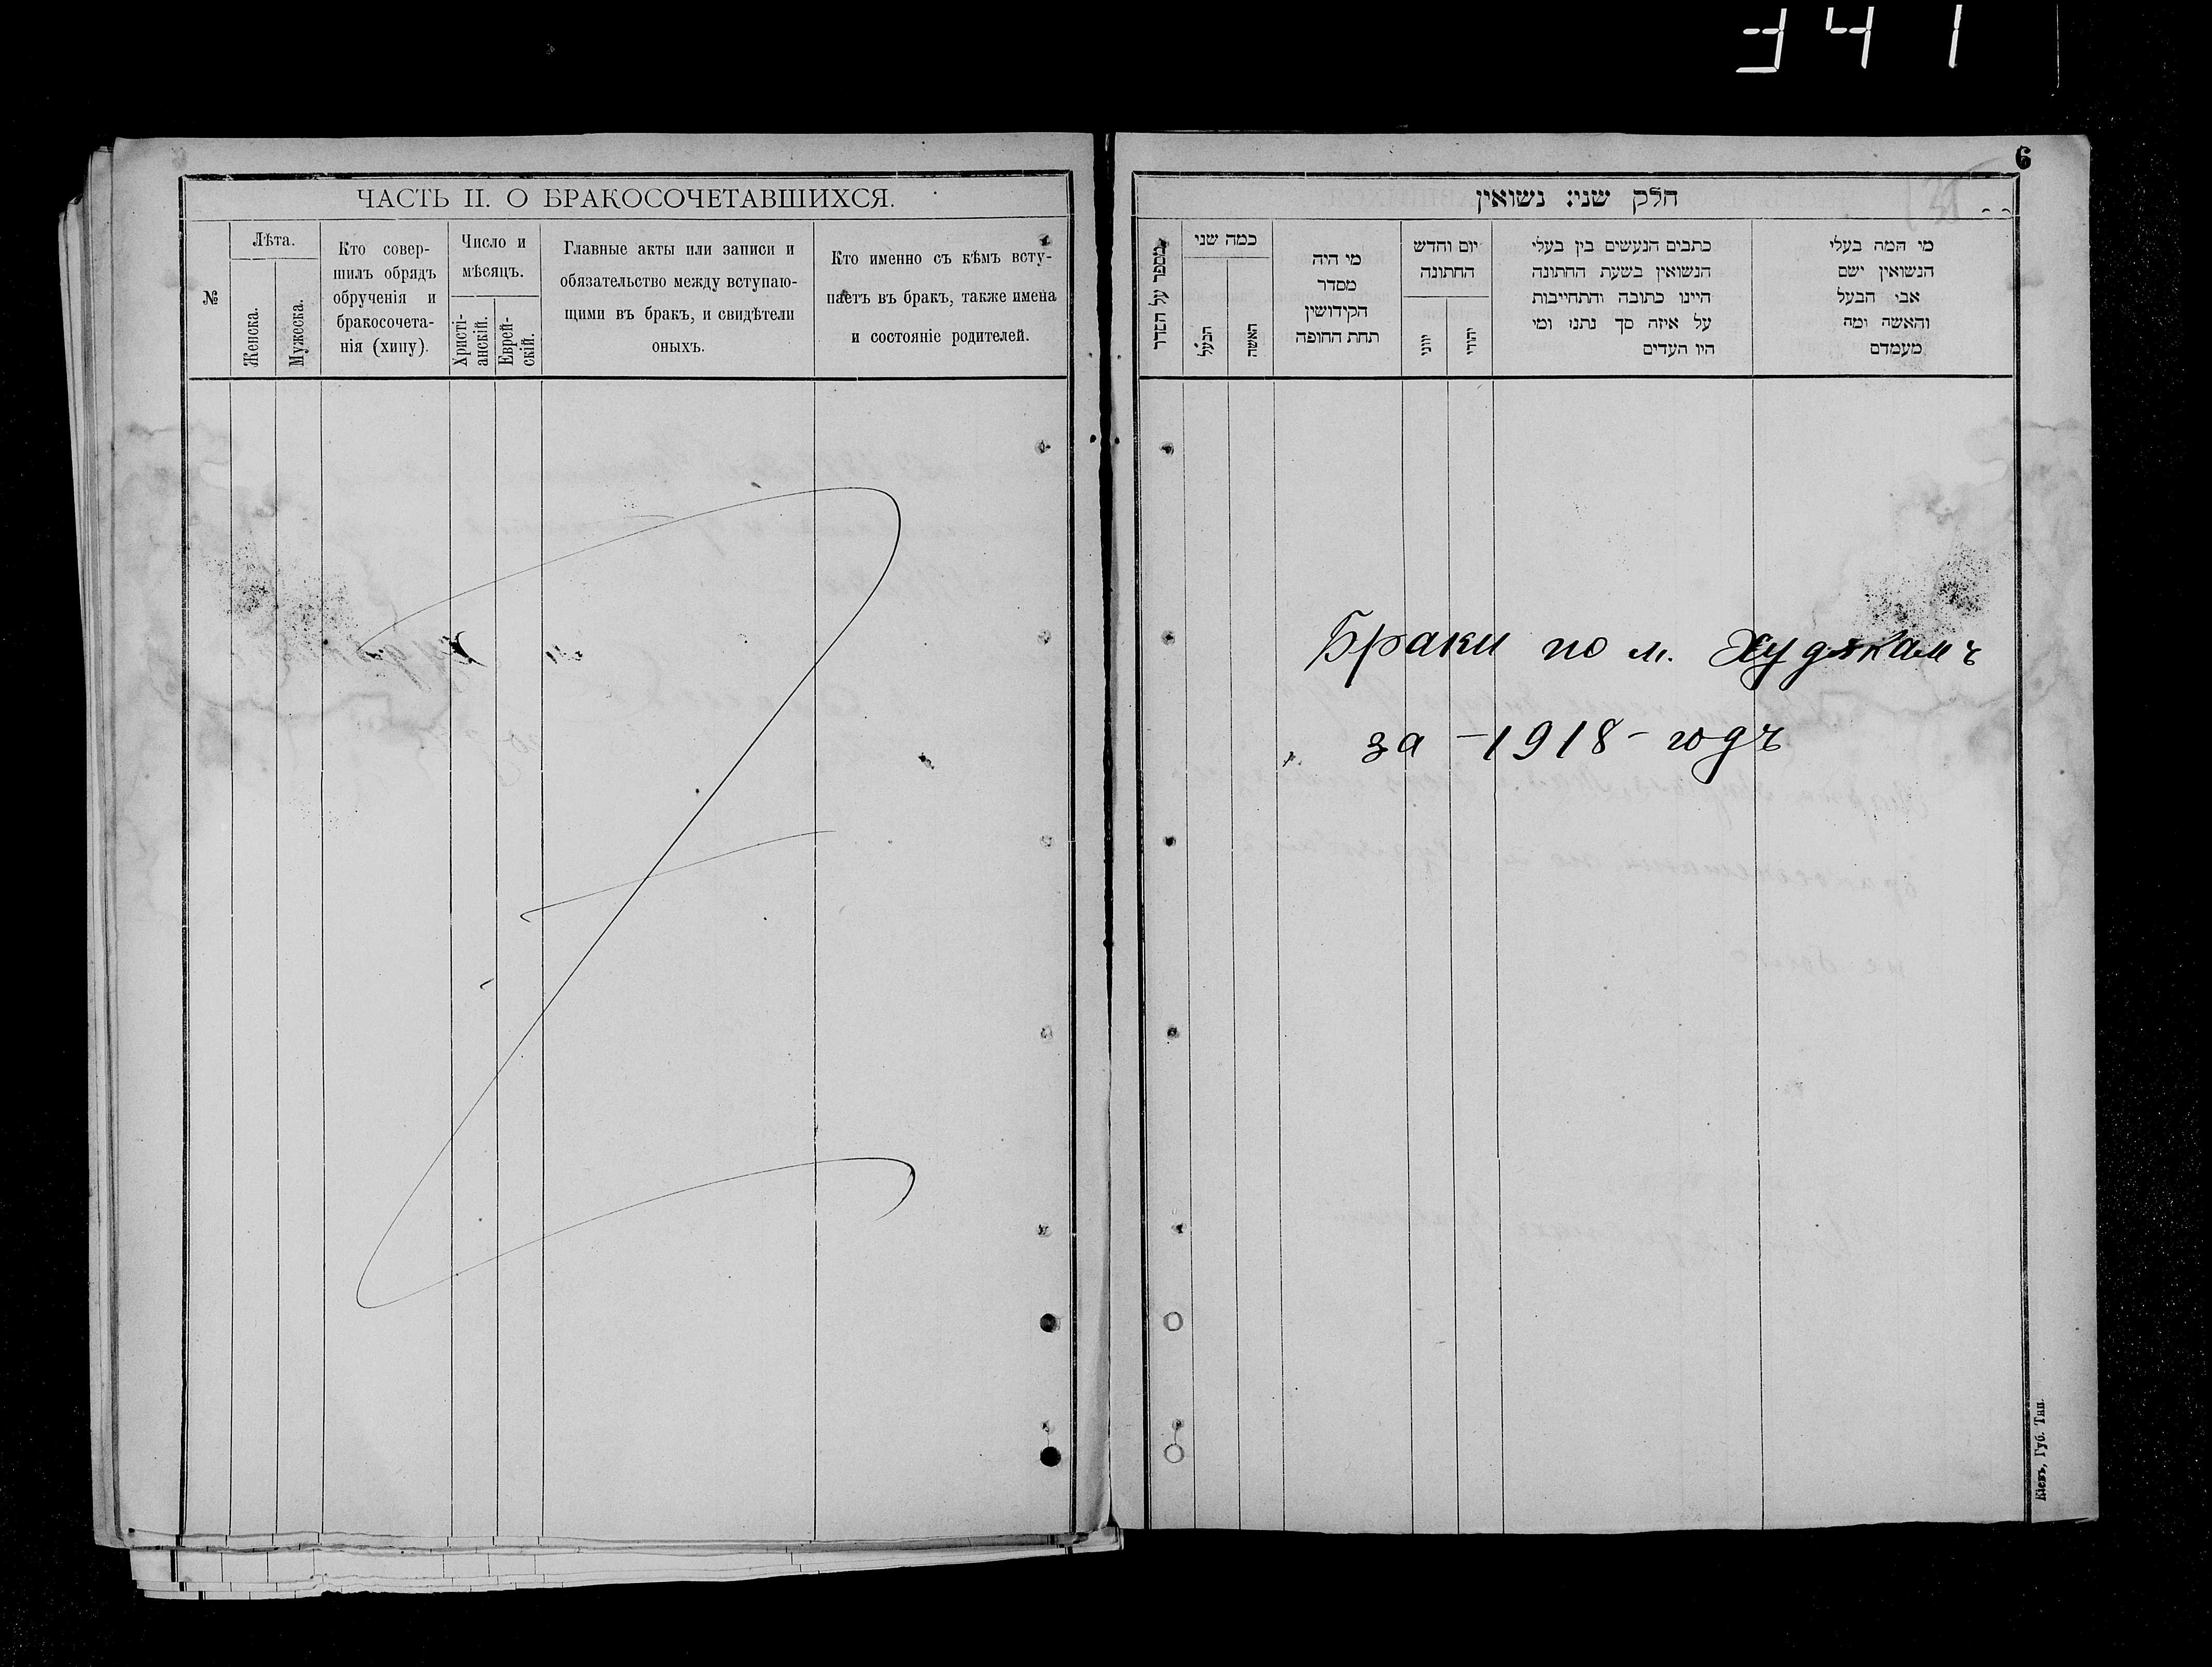 341
ЧАСТЬ II. О БРАКОСОЧЕТАВШИХСЯ.
№
Лѣта.
Женска.
Мужеска.
Кто совер-
шилъ обрядъ
обрученія и
бракосочета-
нія (хипу).
Число и
мѣсяцъ.
Христі-
анскій.
Еврей-
скій.
Главные акты или записи и
обязательство между вступаю-
щими въ бракъ, и свидѣтели
оныхъ.
Кто именно съ кѣмъ всту-
паетъ въ бракъ, также имена
и состояніе родителей.
6
חלק שני: נשואין
מספר על הסדר
כמה שני
הבעל
האשה
מי היה
מסדר
הקידושין
תחת החופה
יום וחדש
החתונה
יווני
יהודי
כתבים הנעשים בין בעלי
הנשואין בשעת החתונה
היינו כתובה והתחייבות
על איזה סך נתנו ומי
היו העדים
מי המה בעלי
הנשואין ושם
אבי הבעל
והאשה ומה
מעמדם
Браки по м. Худякамъ
за -1918- годъ
Кіевъ, Губ. Тип.